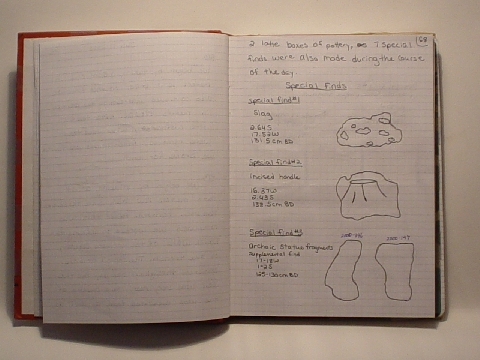 68
2 latte boxes of pottery, 7 special
finds were also made during the course
of the day.
Special Finds
Special find #1
Slag
2.64S
17.52W
131.5cm BD
Special find #2
Incised handle
16.37W
2.43S
138.5cm BD
Special find #3
Archaic Statue fragments
supplemental find
17-18W
1-2S
125-136cm BD